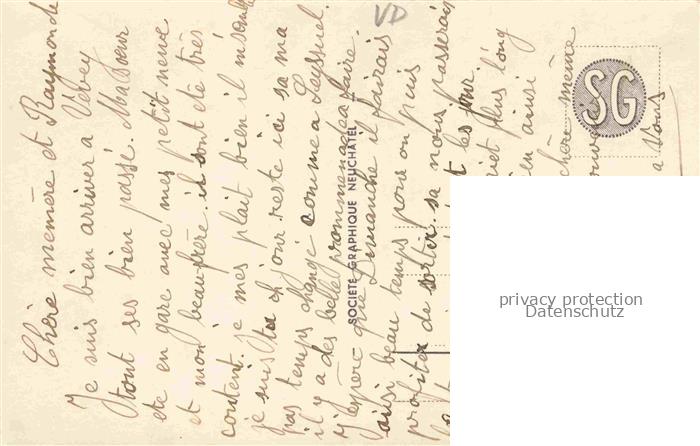 Chère mémère et Raymonde
Je suis bien arriver a Vevey
tout ses bien passé. Ma sœur
etc en gare avec mes petit neveu
et mon beau-frère. il sont été très
coutent. je mes plait bien il m'semble
je suis tu ch jour reste ici sa ma
pas temps changé comme a Leyssul.
il y a des belle prommenades a faire.
J'espère que Dimanche il fairais
ausi beau temps pour on puis
profiter de sortir. sa nous passerais
les jour.
plus long
bien ainsi
chère mémère
a vous
SOCIÉTÉ GRAPHIQUE NEUCHÂTEL
SG
VD
privacy protection
Datenschutz